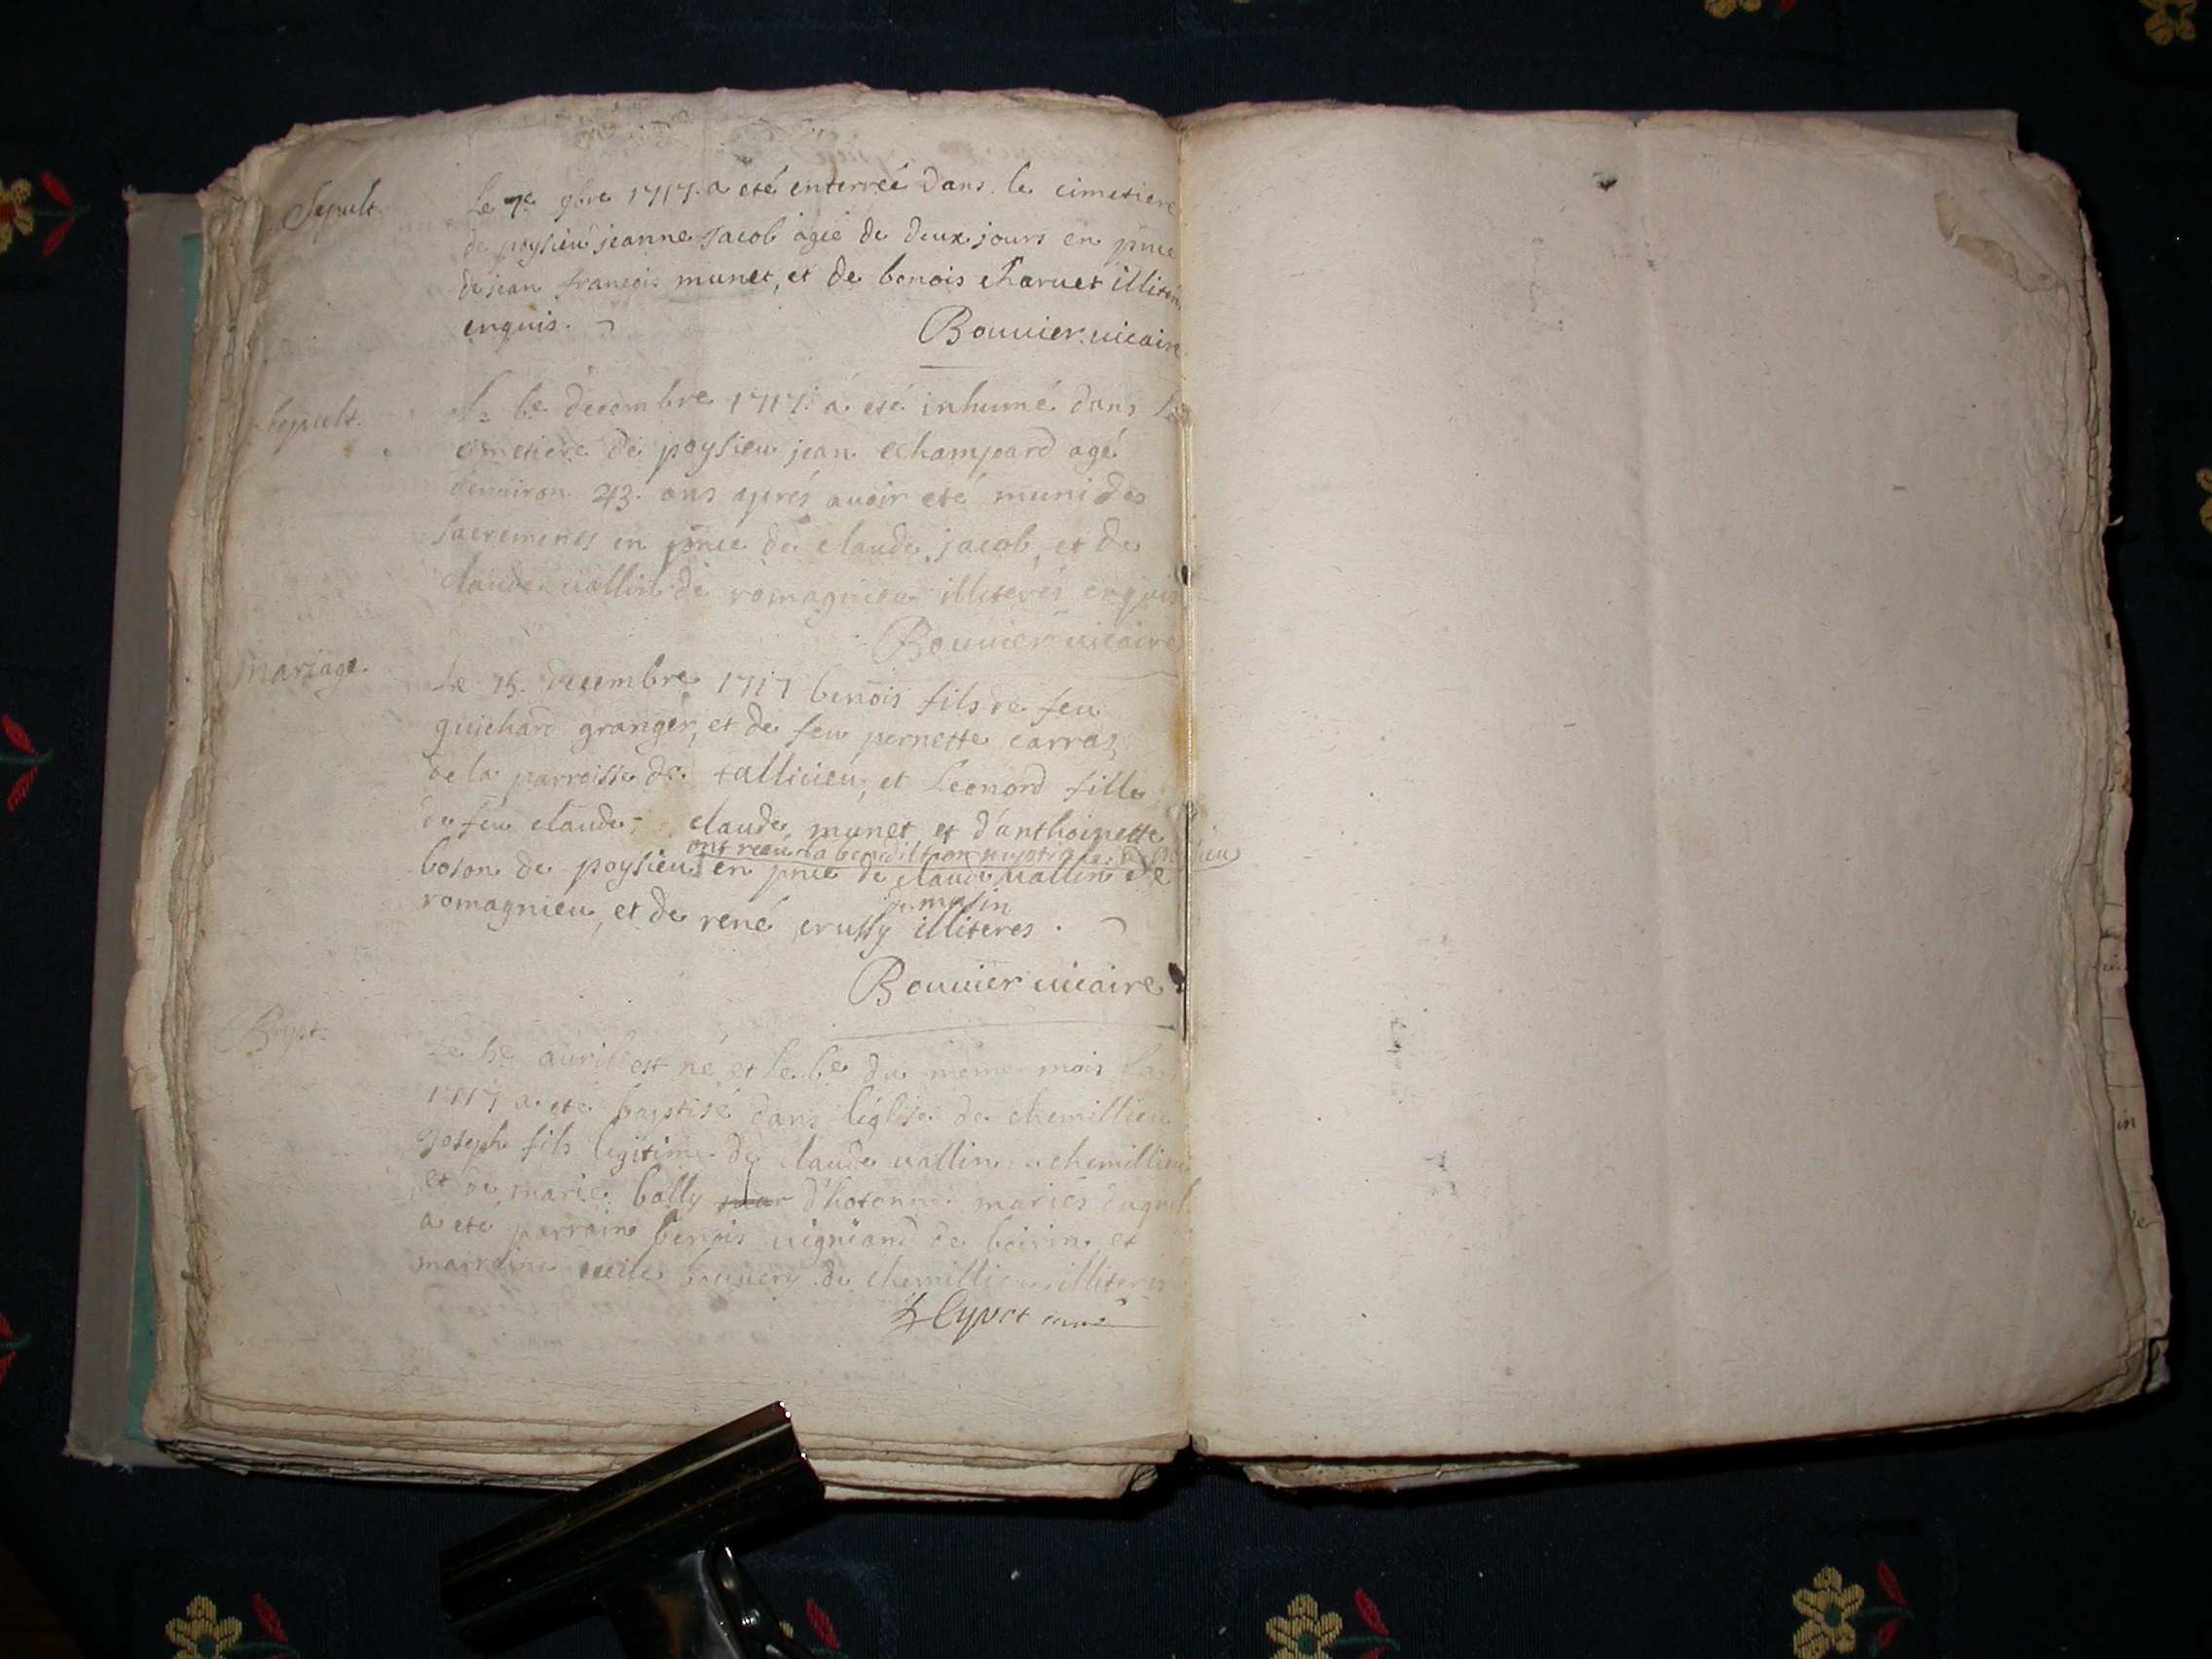 Sepult.
Le 7e 9bre 1717. a eté enterreé dans le cimetiere
de poysieu jeanne Jacob ageé de deux jours en pnce
de jean francois munet, et de benois charvet illiterés
enquis.
Bouuier uicaire
Sepult.
Le 6e decembre 1717. a eté inhumé dans le
cimetiere de poysieu jean champard agé
denuiron 43. ans aprés auoir eté muni des
sacrements en pnce de claude jacob, et de
claude uallin de romagnieu illiterés enquis
Bouuier uicaire
Mariage.
Le 15. decembre 1717 benois fils de feu
guichard granger, et de feu pernette carras,
de la parroisse de tallicieu, et Leonord fille
de feu claude claude munet et d'anthoinette
ont receu la benediction nuptiale
boson de poysieu en pnce de claude uallin de
romagnieu, et de rené crussy illiteres.
Bouuier uicaire
Bapt.
Le 5e auril est né, et le 6e du meme mois
1717 a eté baptisé dans léglise de chemillieu
Joseph fils legitime de claude uallin chemillieu
et de marie bolly d'hotonne mariés duquel
a eté parrain benois uigniand de et
marraine de chemillieu illiterés
curé